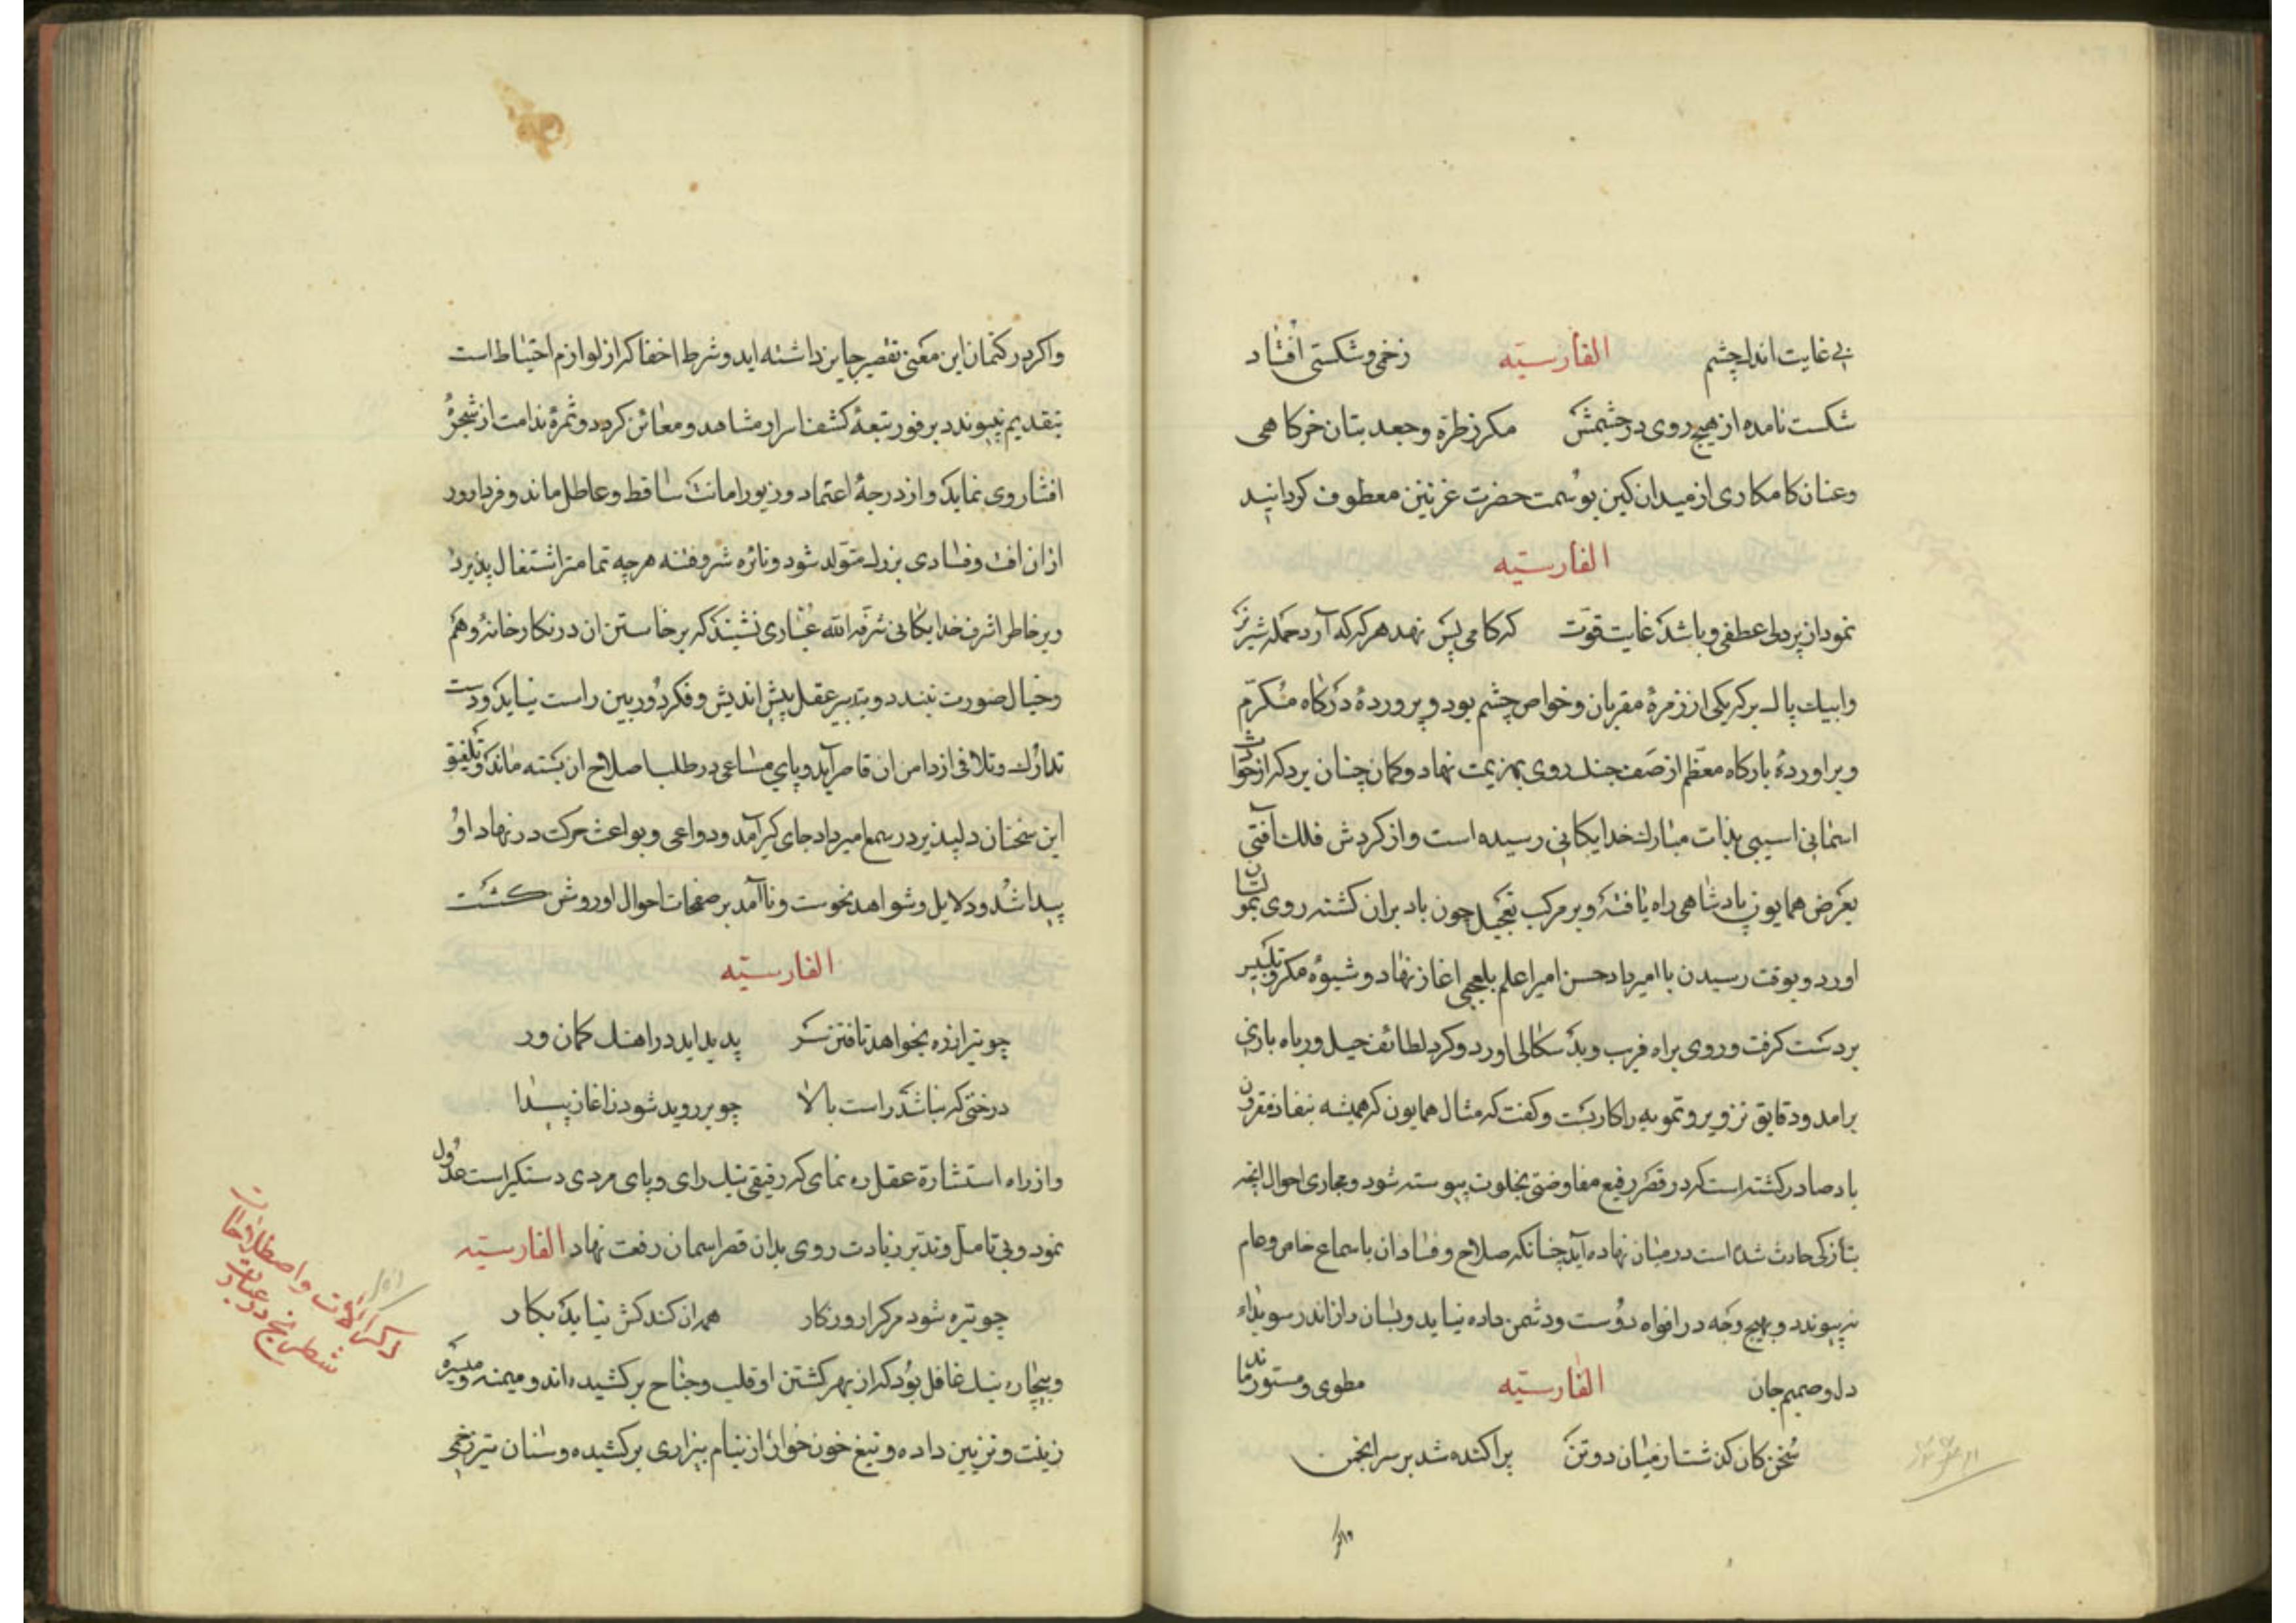 بی غایت اندام چشم الفارسیّه زخمی و شکستی افتاد
شکست نامده از هیچ روی در چشمش مکر ز طره و جعد بتان خرکاهی
و عنان کامکاری از میدان کین بر سمت حضرت غزنین معطوف کردانید
الفارسیّه
نمود از پردلی عطفی و باشد غایت قوّت که کامی پس نهد هر که که آرد حمله شیر نر
و ایبک پال بر که یکی از زمرهٔ مقربان و خواص چشم بود و پروردهٔ درکاه مکرّم
و براوردهٔ بارکاه معظم از صف جند روی بهزیمت نهاد و کمان چنان برد که از حوادث
اسمانی اسیبی بذات مبارک خدایکانی رسیده است و از کردش فلک آفتی
بعرض همایون پادشاهی راه یافته و بر مرکب تعجیل چون باد بران کشته روی بتموّ
اورد و بوقت رسیدن با امیرداد حسن امیر اعلم بلعجبی اغاز نهاد و شیوهٔ مکر و تلبیس
بر دست کرفت و روی براه فریب و بد سکالی اورد و کرد لطائف حیل و رباه بازی
برامد و دقایق تزویر و تمویه را کار بست و کفت که مثال همایون که همیشه بنفاذ مقرون
باد صادر کشته است که در قصر رفیع مفاوضتی بخلوت پیوسته شود و مجاری احوال انچه
بتازکی حادث شده است در میان نهاده آید چنانکه صلاح و فساد ان باسماع خاص و عام
نپیوندد و بهیچ وجه در افواه دوست و دشمن داده نیاید و بسان راز اندر سویداء
دل و صمیم جان الفارسیّه مطوی و مستور ماند
سخن کان کذشت از میان دو تن پراکنده شد بر سر انجمن
واکر
واکر در کتمان این معنی تقصیر جایز داشته اید و شرط اخفا که از لوازم احتیاط است
بتقدیم نپیوندد بر فور تبعهٔ کشف اسرار مشاهد و معائن کردد و ثمرهٔ ندامت از شجرهٔ
افشا روی نماید و از درجهٔ اعتماد و زیور امانت ساقط و عاطل ماند و فردا روز
ازان افت و فسادی بزرک متولد شود و نائره شر و فتنه هر چه تمامتر اشتعال پذیرد
و بر خاطر اشرف خدایکانی شرفه الله غباری نشیند که برخاستن ان در نکارخانهٔ وهم
و خیال صورت نبندد و بتدبیر عقل پیش اندیش و فکر دور بین راست نیاید و دست
تدارک و تلافی از دامن ان قاصر آید و پای مساعی در طلب اصلاح ان بسته ماند و تلفیق
این سخنان دلپذیر در سمع امیرداد جای کیر آمد و دواعی و بواعث حرکت در نهاد او
پیدا شد و دلایل و شواهد نحوست و ناآمد بر صفحات احوال او روشن کشت
الفارسیّه
چو تیر از زه بخواهد تافتن سر پدید اید در اهنک کمان ور
درختی که نباشد راست بالا چو بر روید شود ز اغاز پیدا
و از راه استشارة عقل ره نمای که رفیقی نیک رای و پای مردی دستکیر است عدول
نمود و بی تامل و تدبر زیادت روی بدان قصر اسمان رفعت نهاد الفارسیّه
چو تیره شود مر کرا روزکار همه ان کند کش نیاید بکار
و بیچاره نیک غافل بود که از بهر کشتن او قلب و جناح برکشیده اند و میمنه و میسره
زینت و تزیین داده و تیغ خون خوار از نیام بیزاری برکشیده و سنان تیز زخمی
ذکر آلات و اصطلاحات
شطرنج در عبارت